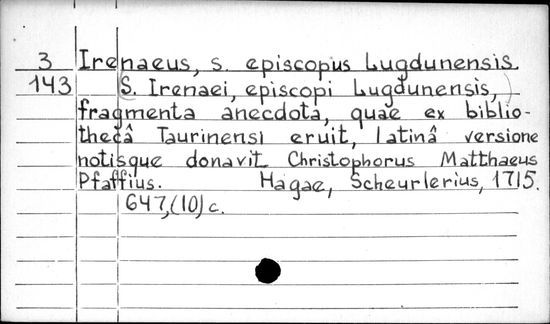 3 Irenaeus, s. episcopus Lugdunensis.
143 (S. Irenaei, episcopi Lugdunensis,)
fragmenta anecdota, quae ex biblio-
thecâ Taurinensi eruit, latinâ versione
notisque donavit Christophorus Matthaeus
Pfaffius. Hagae, Scheurlerius, 1715.
647,(10) c.